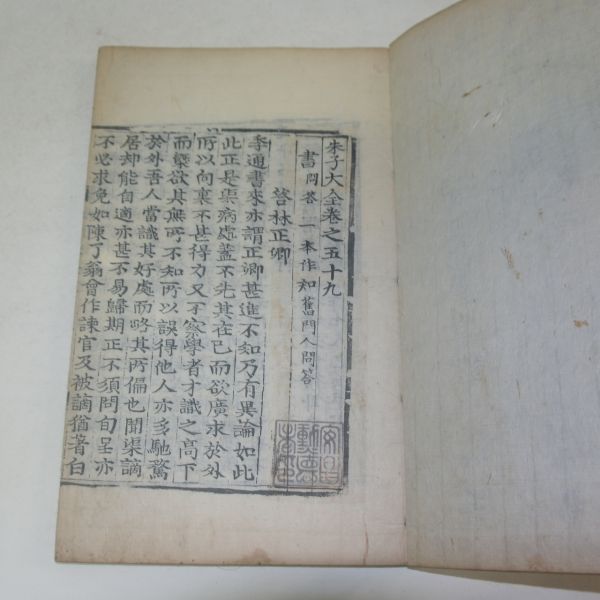 朱子大全卷之五十九
書 問答 一本作知舊門人問答
答林正卿
季通書來亦謂正卿甚進不知乃有異論如此
此正是渠病處蓋不先其在己而欲廣求於外
所以向裏不甚得力又不察學者才識之高下
而槩欲其無所不知所以誤得他人亦多馳騖
於外吾人當識其好處而略其所偏也聞渠謫
居却能自適亦甚不易歸期正不須問旬呈亦
不必求免如陳了翁曾作諫官及被謫猶著白